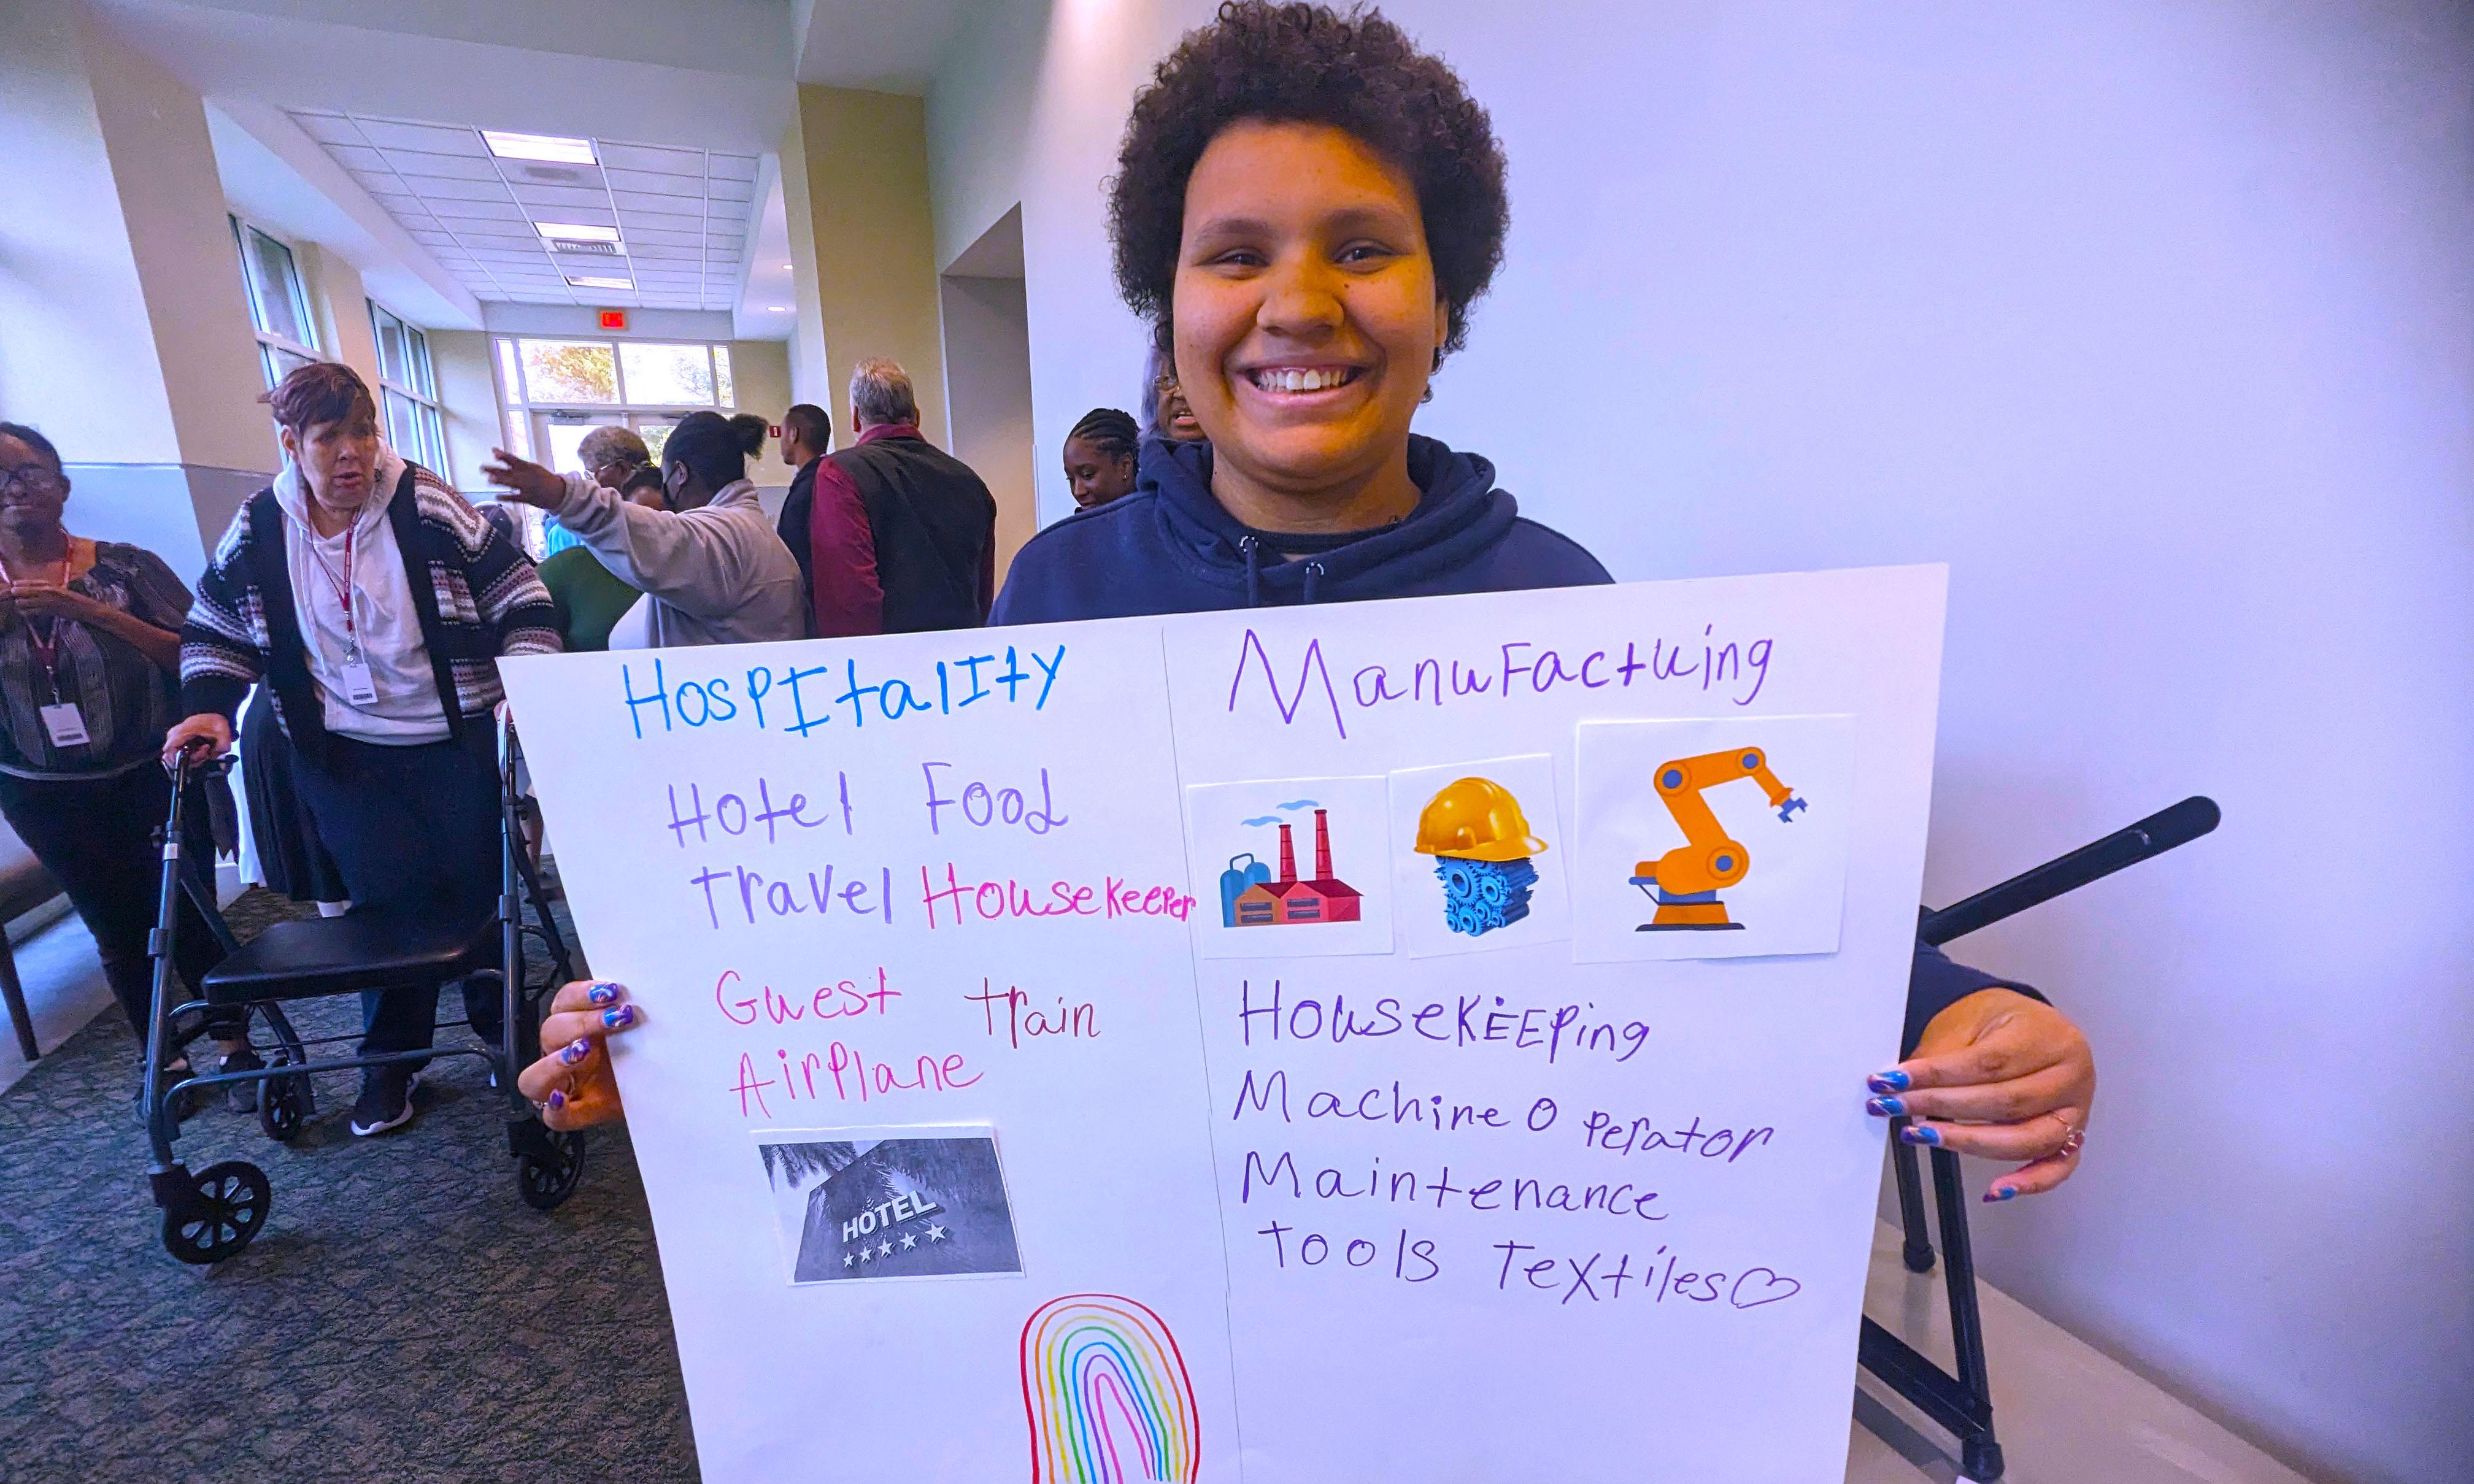 HospItalIty
Hotel Food
travel Housekeeper
Guest train
AirPlane
HOTEL
Manufactuing
HousekEEPing
Machine Operator
Maintenance
tools Textiles